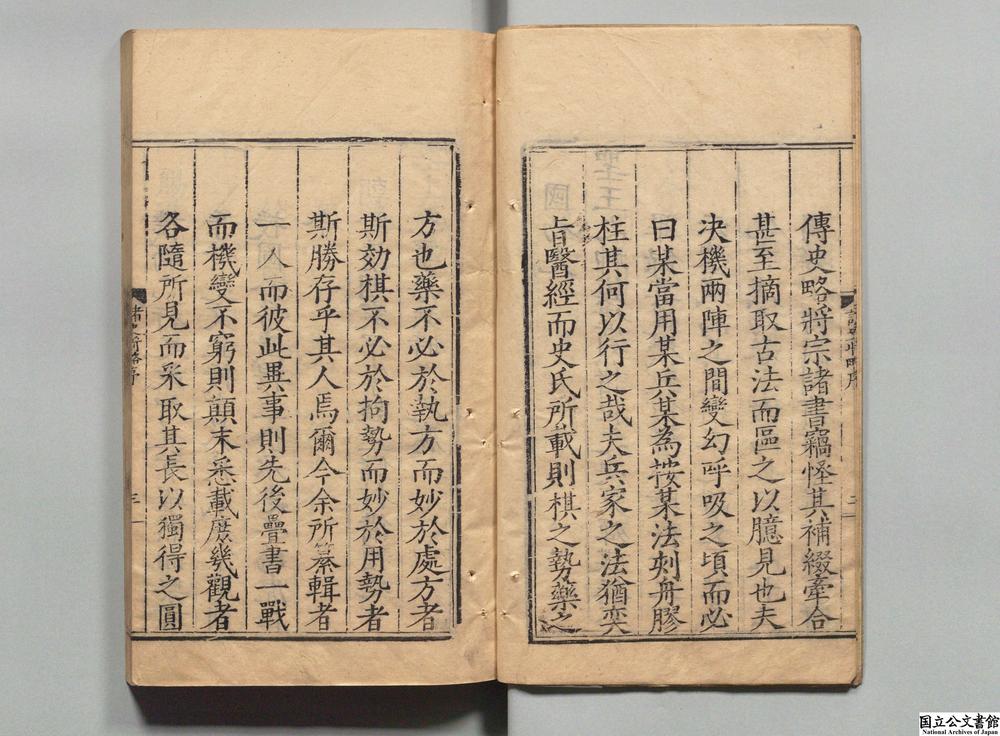 傳史略將宗諸書竊怪其補綴牽合
甚至摘取古法而區之以臆見也夫
決機兩陣之間變幻呼吸之頃而必
曰某當用某兵某為按某法刻舟膠
柱其何以行之哉夫兵家之法猶奕
旨醫經而史氏所載則棋之勢藥之
方也藥不必於執方而妙於處方者
斯効棋不必於拘勢而妙於用勢者
斯勝存乎其人焉爾今余所纂輯者
一人而彼此異事則先後疊書一戰
而機變不窮則顛末悉載庶幾觀者
各隨所見而采取其長以獨得之圓
二
三
国立公文書館
National Archives of Japan